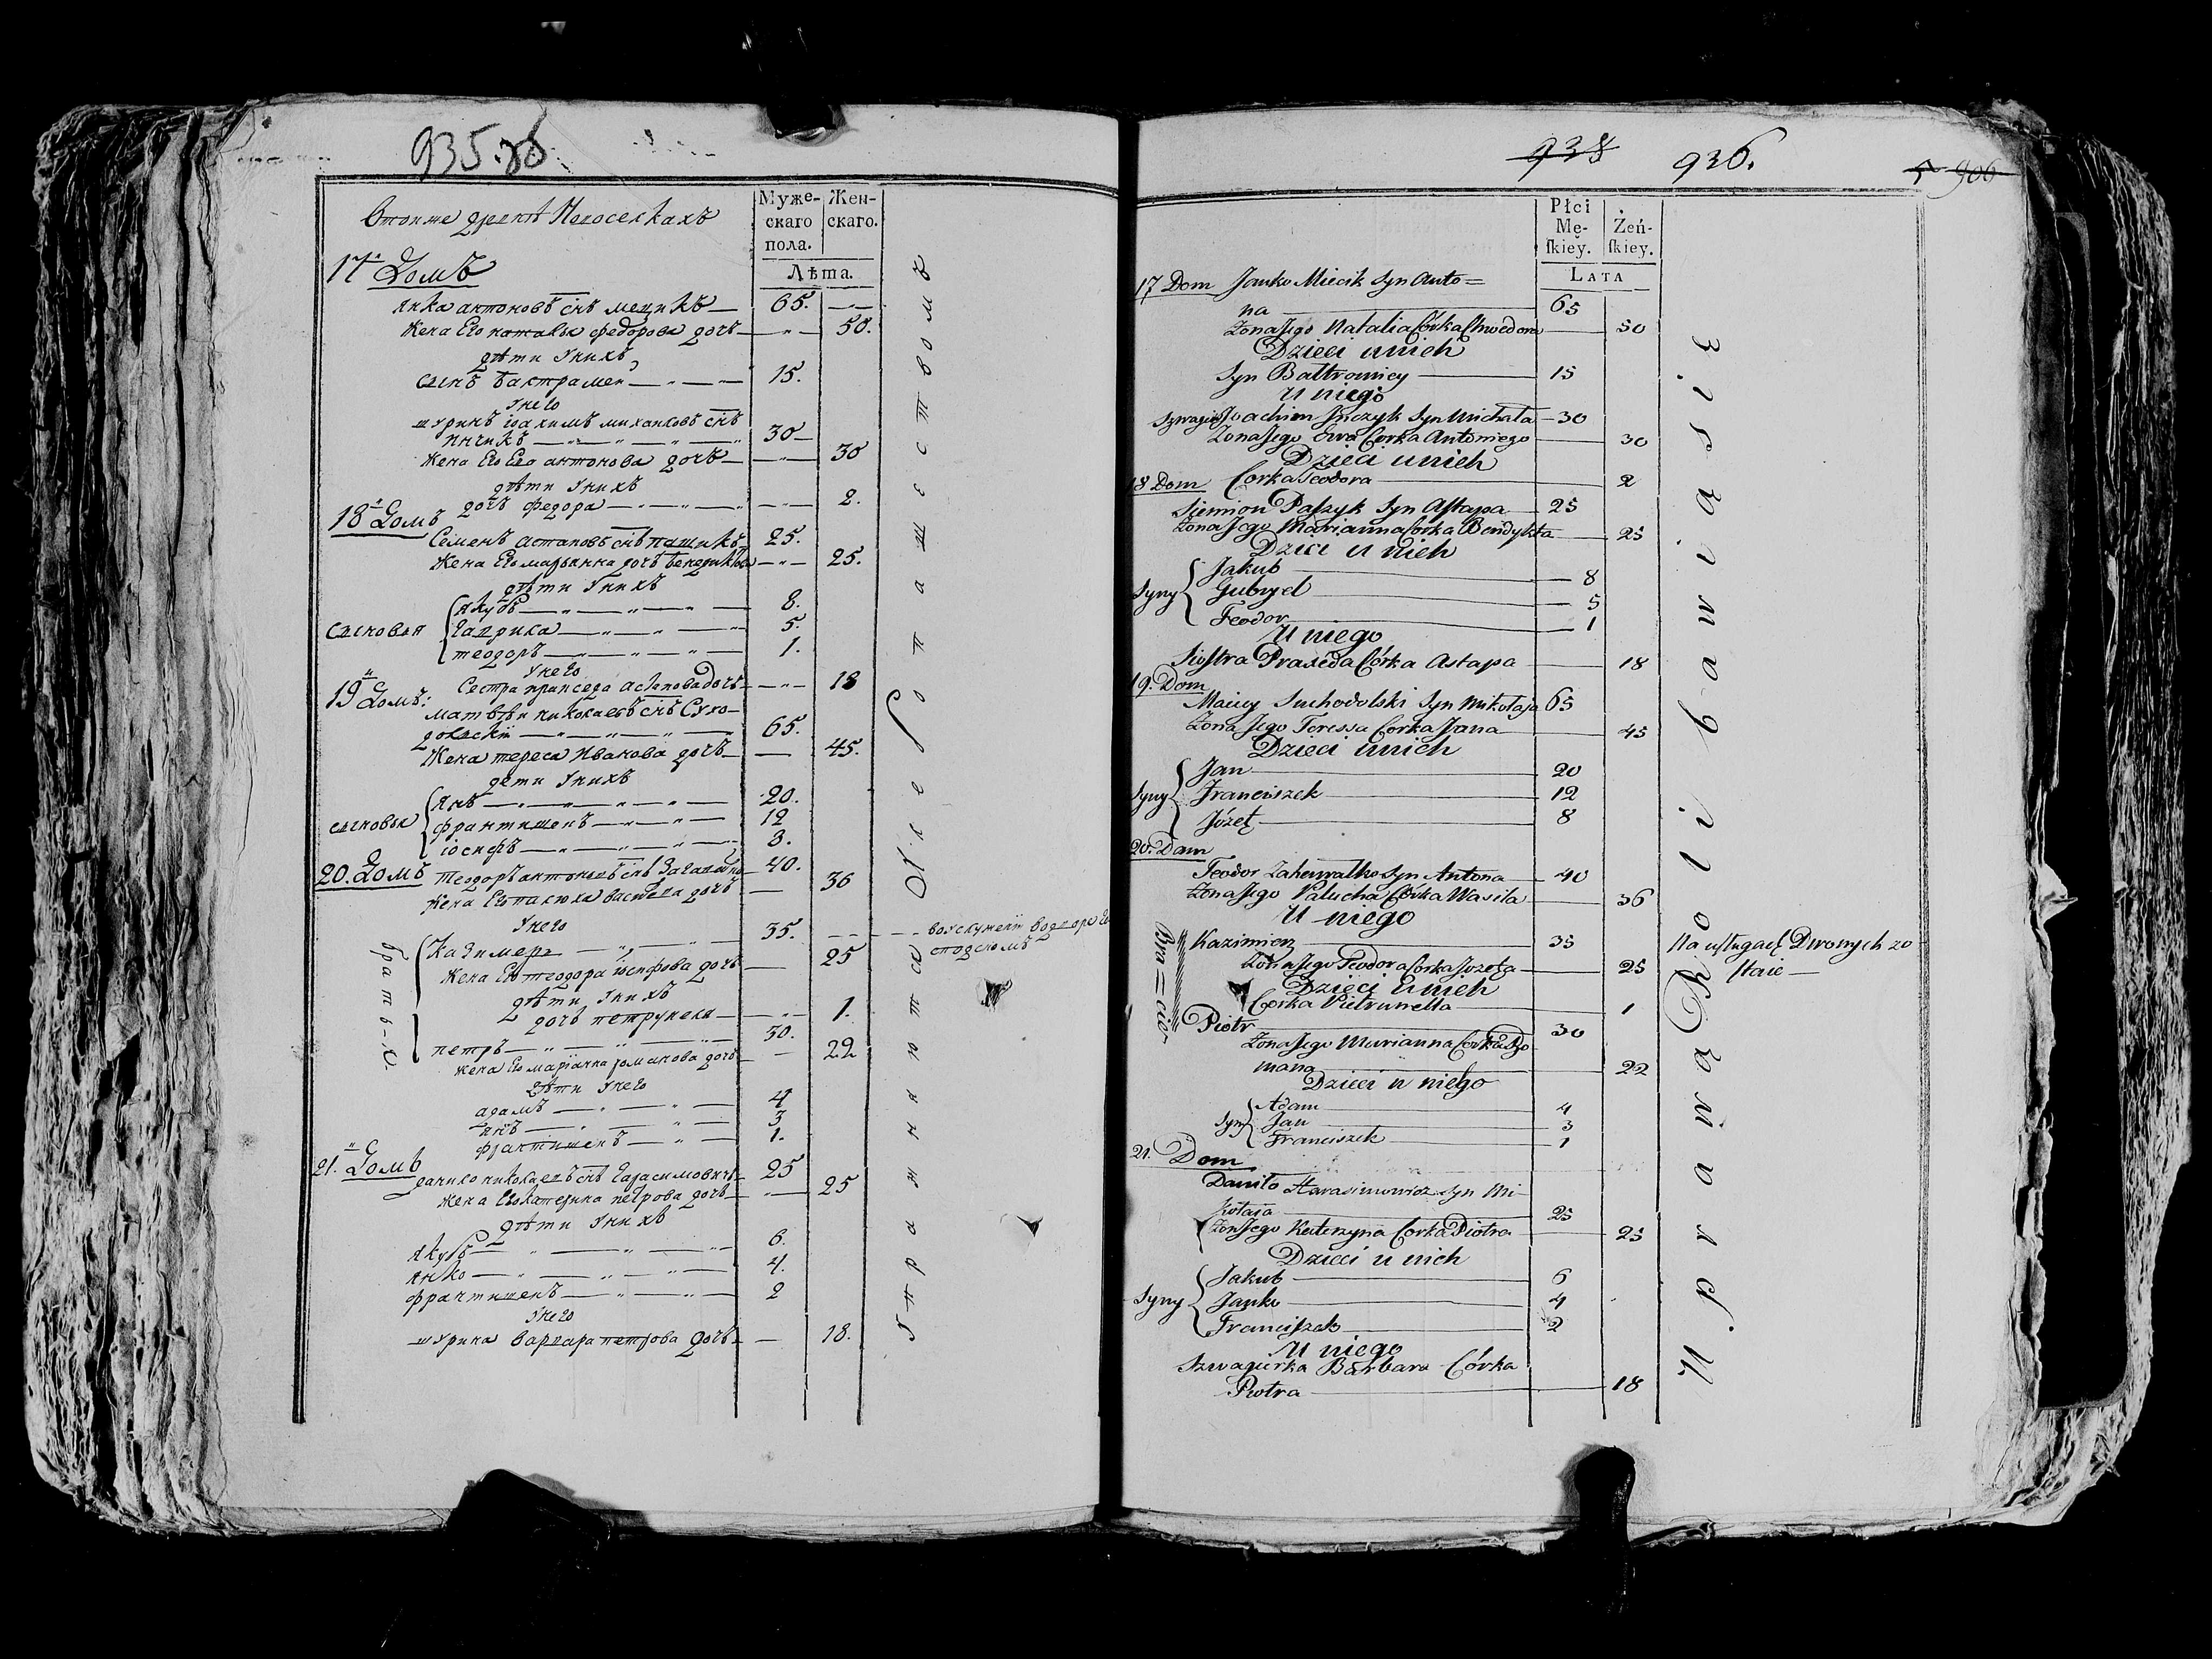 935. об
Втоиже древнѣ Новоселкахъ
Муже-
скаго
пола.
Жен-
скаго.
Лѣта.
17й Домъ
Янка антоновъ снъ мецикъ — 65.
Жена Его наталья федорова дочь — 50.
дѣти Унихъ
сынъ Бактрамеи — 15.
Унего
шуринъ іоахимъ михаиловъ снъ
инчикъ — 30
Жена Его Ева антонова дочь — 30
дѣти Унихъ
дочь федора — 2.
18й Домъ
Семенъ Астаповъ снъ пашикъ 25.
Жена Его марьянна дочь бенедикта — 25.
дѣти Унихъ
сыновья
Якубъ — 8.
Гаврила — 5.
теодоръ — 1.
Унего
Сестра пракседа Астапова дочь — 18
19й Домъ:
матвѣи николаевъ снъ Сухо-
дольскій — 65.
Жена тереса Иванова дочь — 45.
дети Унихъ
сыновья
Янъ — 20.
франтишекъ — 12
іосифъ — 8.
20. Домъ теодоръ антоновъ снъ — 40.
Жена Его палюха василя дочь — 36
Унего
братья
Казимеръ — 35.
Жена Его теодора іосифова дочь — 25
дѣти Унихъ
дочь петрунеля — 1.
петръ — 30.
Жена Его маріанна романова дочь — 22
дѣти Унего
адамъ — 4
янъ — 3
франтишекъ — 1.
21.й Домъ
данило николаевъ снъ Гарасимовичъ 25
Жена Его Катерина петрова дочь — 25
дѣти Унихъ
Якубъ — 6.
Янко — 4.
франтишекъ — 2
Унего
шурина варвара петрова дочь — 18.
938 936.
906
Płci
Mę-
skiey.
Żeń-
skiey.
LATA
17 Dom Janko Miecik Syn Anto=
na — 65
Żona Jego Natalia Córka Chwedora — 50
Dzieci u nich
Syn Baltromiey — 15
U niego
Szwagier Joachim Jnczyk Syn Michała — 30
Żona Jego Ewa Corka Antoniego — 30
Dzieci u nich
Corka Teodora — 2
18 Dom
Siemion Paszyk Syn Astapa — 25
Żona Jego Marianna Corka Bendykta — 25
Dzieci u nich
Syny
Jakub — 8
Gabryel — 5
Teodor — 1
U niego
Siostra Praxeda Córka Astapa — 18
19. Dom
Maciey Suchodolski Syn Mikołaja 65
Żona Jego Teressa Corka Jana — 45
Dzieci u nich
Syny
Jan — 20
Franciszek — 12
Józef — 8
20. Dom
Teodor Zahowalko Syn Antona — 40
Żona Jego Palucha Córka Wasila — 36
U niego
Bra=cia
Kazimierz — 35
Na usługach Dwornych zo
staie —
Żona Jego Teodora Corka Jozefa — 25
Dzieci u nich
Corka Pietrunella — 1
Piotr — 30
Żona Jego Marianna Corka Ro
mana — 22
Dzieci u niego
Syn
Adam — 4
Jan — 3
Franciszek — 1
21. Dom
Daniło Harasimowicz Syn Mi-
kołaja — 25
Żona Jego Katerzyna Corka Piotra — 25
Dzieci u nich
Syny
Jakub — 6
Janko — 4
Franciszek — 2
U niego
Szwagierka Barbara Córka
Piotra — 18
Uprawią Roli bawią sie